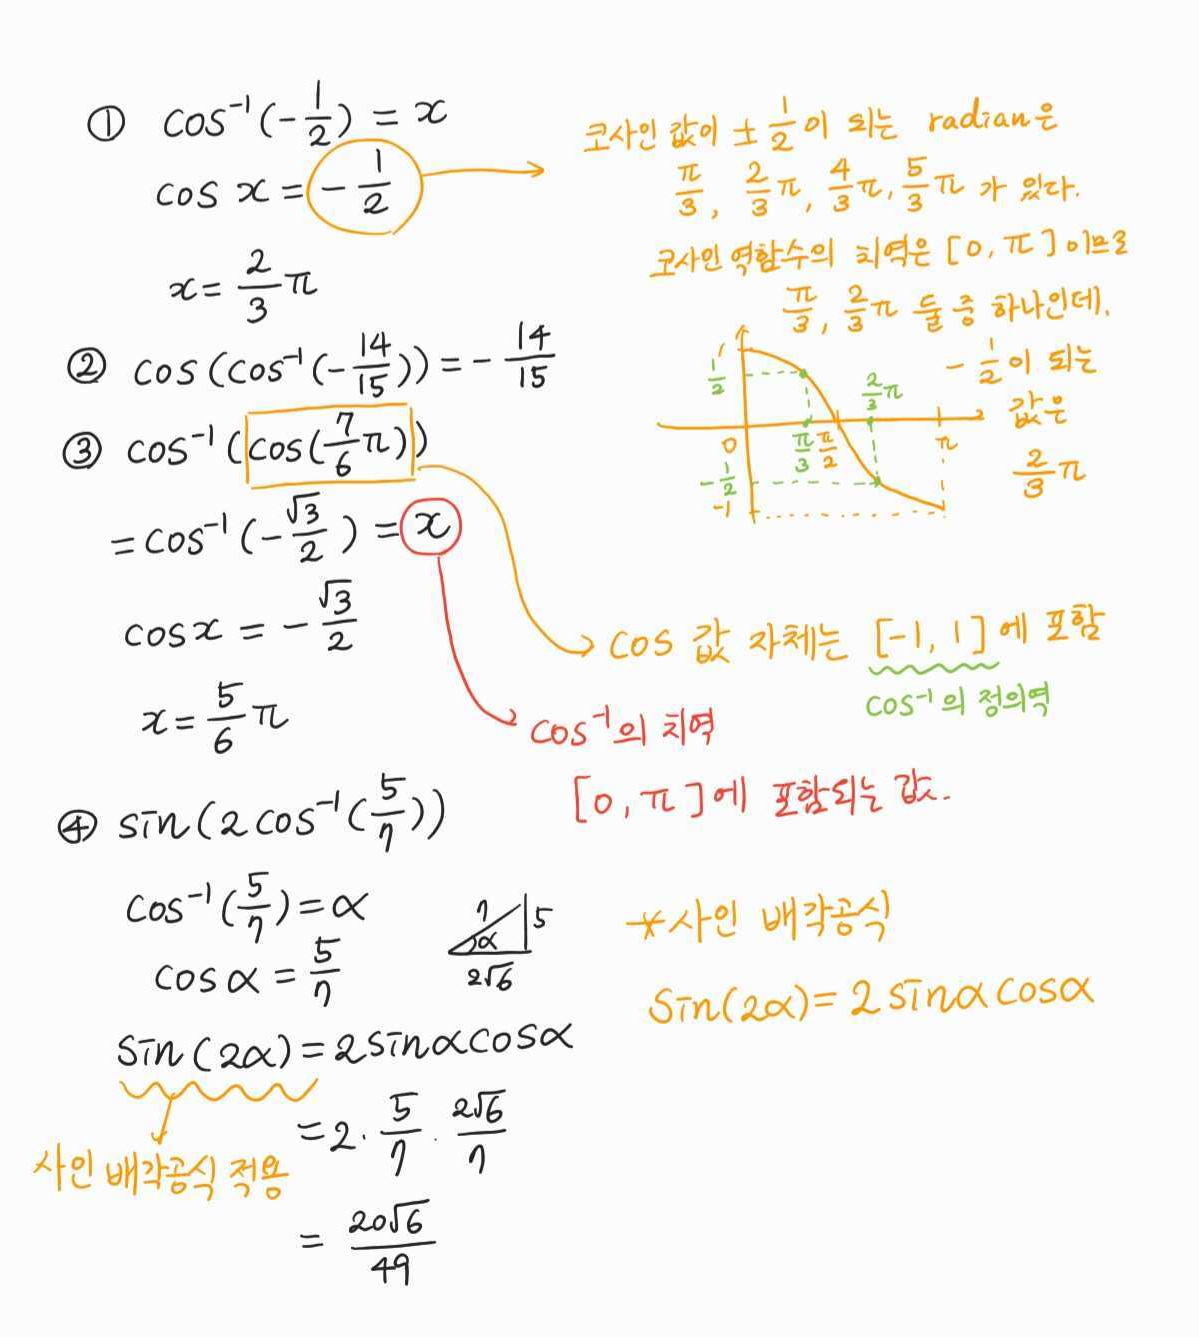 ① cos⁻¹(-1/2) = x
cos x = -1/2
x = 2/3 π
코사인 값이 ± 1/2이 되는 radian은
π/3, 2/3 π, 4/3 π, 5/3 π 가 있다.
코사인 역함수의 치역은 [0, π] 이므로
π/3, 2/3 π 둘 중 하나인데,
- 1/2이 되는
값은
2/3 π
1
1/2
0
-1/2
-1
π/3
π/2
2/3 π
π
② cos(cos⁻¹(-14/15)) = -14/15
③ cos⁻¹(cos(7/6 π))
= cos⁻¹(-√3/2) = x
cos x = -√3/2
x = 5/6 π
cos 값 자체는 [-1, 1]에 포함
cos⁻¹의 정의역
cos⁻¹의 치역
[0, π]에 포함되는 값.
④ sin(2cos⁻¹(5/7))
cos⁻¹(5/7) = α
cos α = 5/7
7
5
α
2√6
sin(2α) = 2 sinα cosα
= 2 · 5/7 · 2√6/7
= 20√6/49
사인 배각공식 적용
*사인 배각공식
sin(2α) = 2 sinα cosα